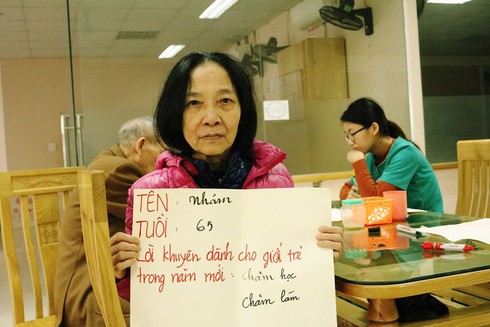 TÊN : Nhâm
TUỔI : 65
Lời khuyên dành cho giới trẻ
trong năm mới : chăm học
chăm làm